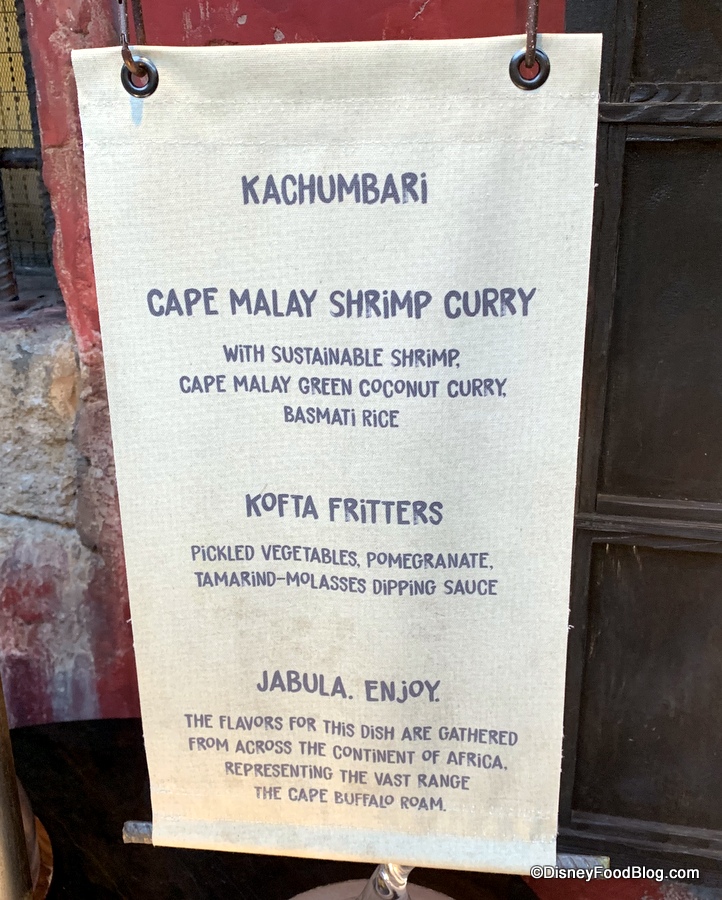 KACHUMBARi
CAPE MALAY SHRiMP CURRY
WiTH SUSTAiNABLE SHRiMP,
CAPE MALAY GREEN COCONUT CURRY,
BASMATi RiCE
KOFTA FRiTTERS
PiCKLED VEGETABLES, POMEGRANATE,
TAMARiND-MOLASSES DiPPiNG SAUCE
JABULA. ENJOY.
THE FLAVORS FOR THiS DiSH ARE GATHERED
FROM ACROSS THE CONTiNENT OF AFRiCA,
REPRESENTiNG THE VAST RANGE
THE CAPE BUFFALO ROAM.
©DisneyFoodBlog.com